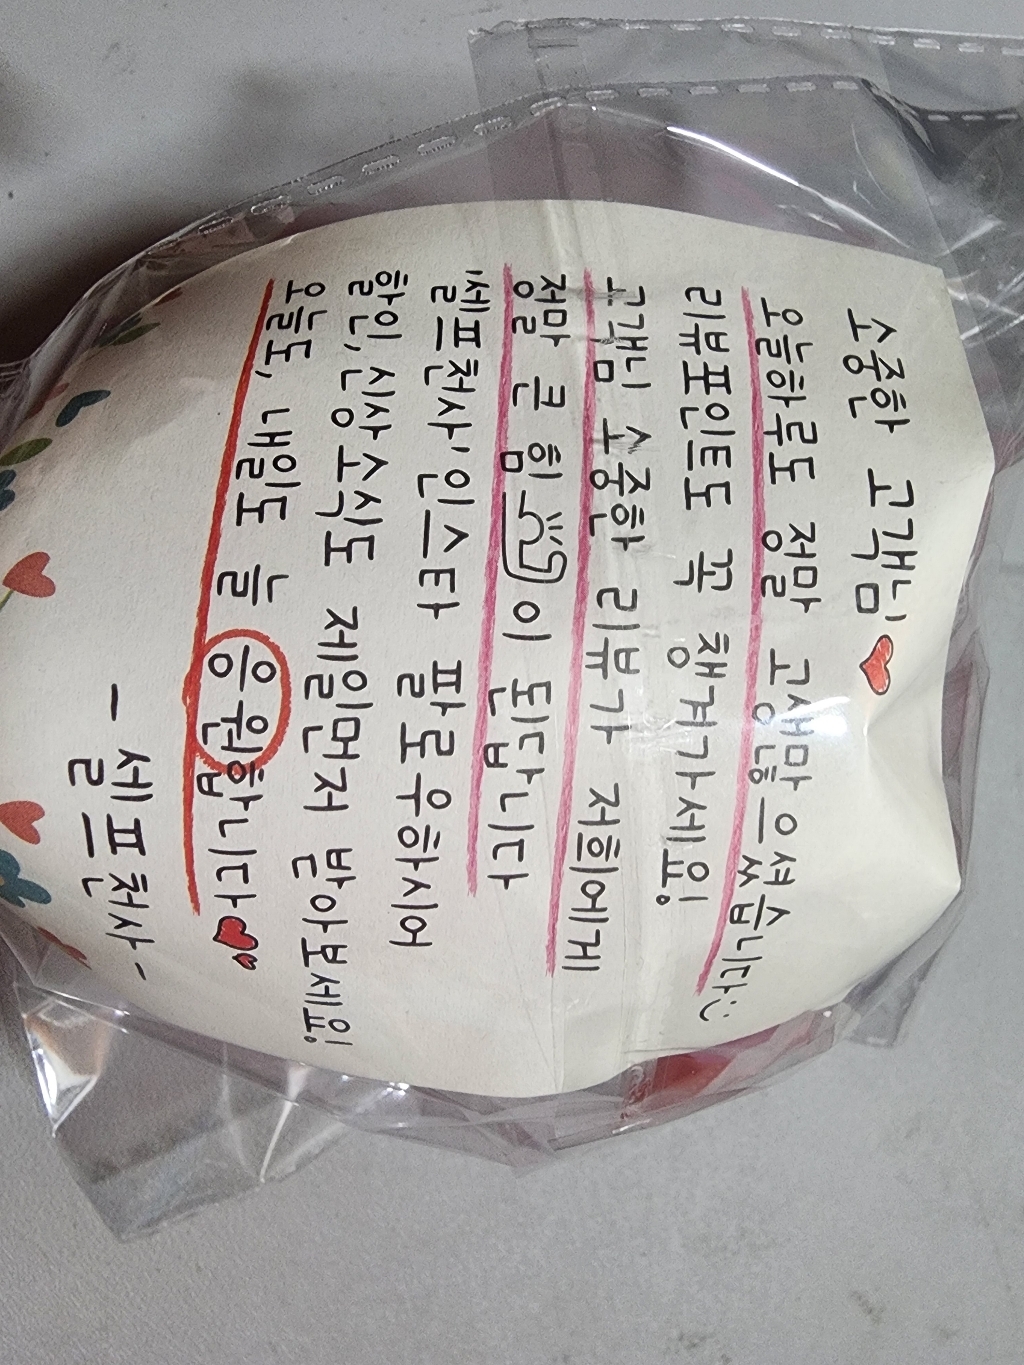 소중한 고객님
오늘하루도 정말 고생많으셨습니다
리뷰포인트도 꼭 챙겨가세요!
고객님 소중한 리뷰가 저희에게
정말 큰 힘이 된답니다
'셀프천사' 인스타 팔로우하시어
할인, 신상소식도 제일먼저 받아보세요!
오늘도, 내일도 늘 응원합니다
- 셀프천사 -